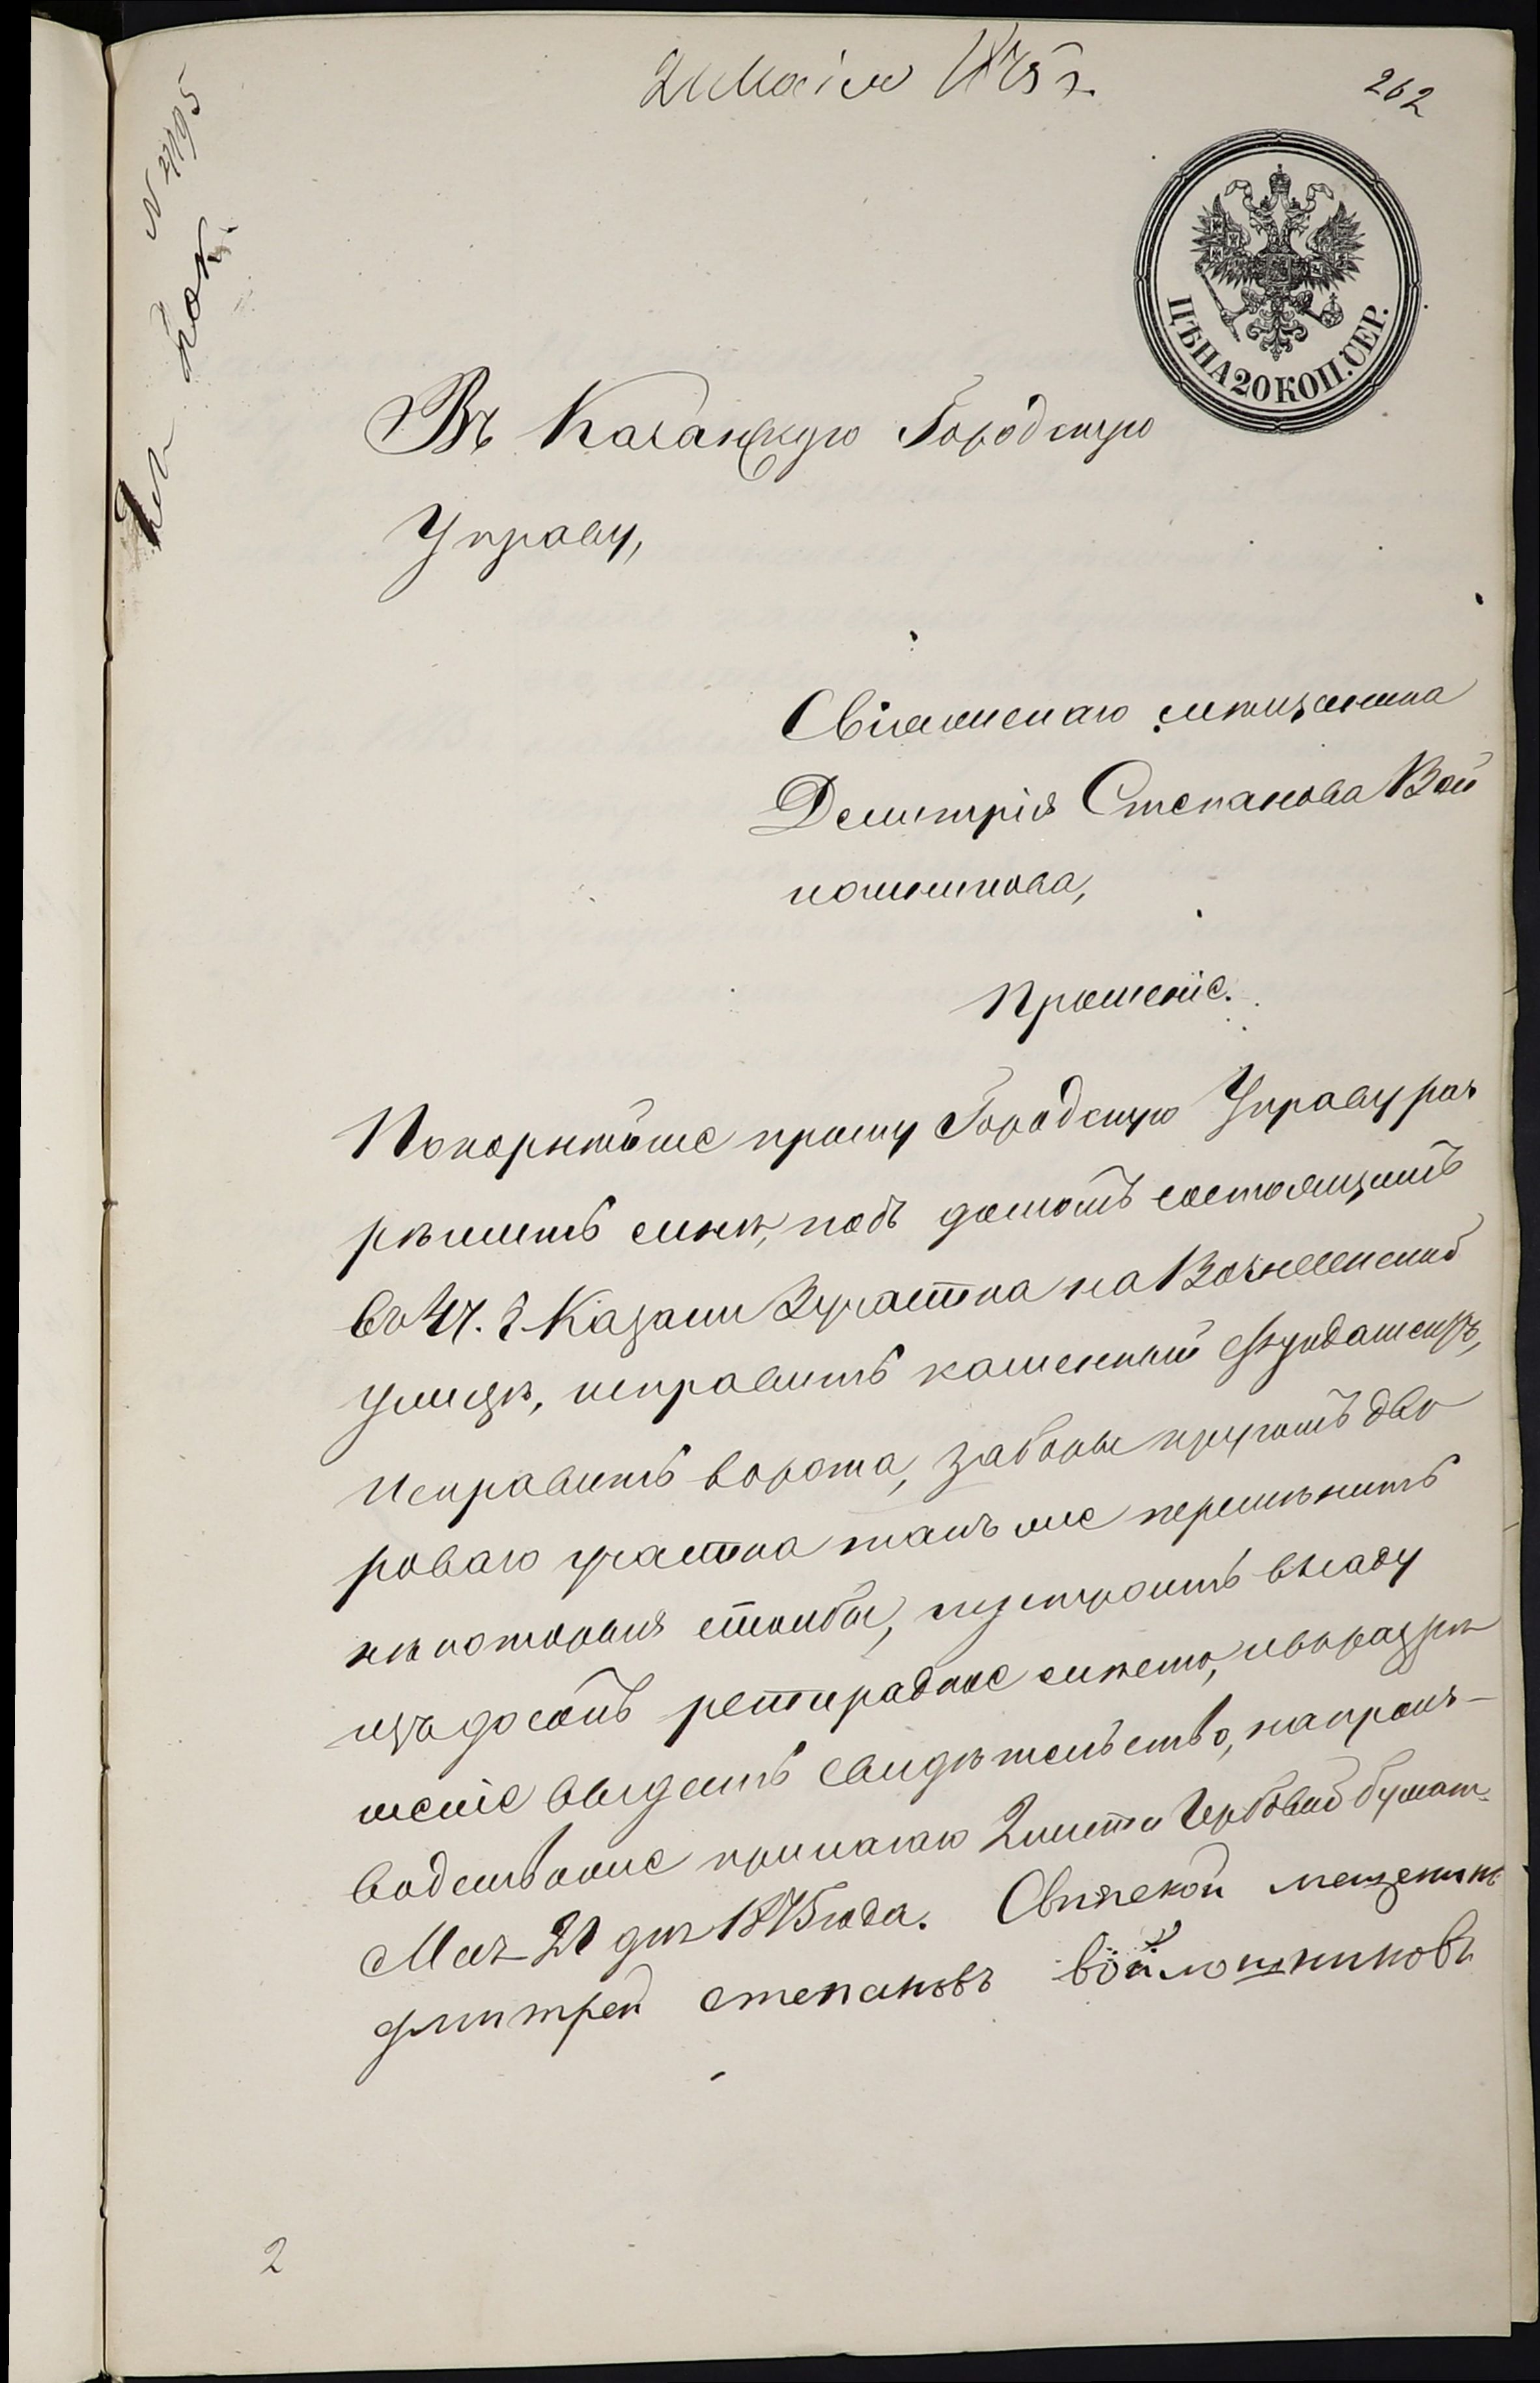 21 Маія 1875 г.
262
N 2795
ЦѢНА 20 КОП. СЕР.
Въ Казанскую Городскую
Управу,
Свіяжскаго мѣщанина
Демитрія Степанова Вой
лошникова,
Прошеніе.
Покорнѣйше прошу Городскую Управу раз
рѣшить мнѣ, подъ домомъ состоящимъ
во 4 ч. г. Казани 2 участка на Вознесенской
улицѣ, исправить каменный фундаментъ,
Исправить ворота, заборы кругомъ дво
роваго участка такъ же перемѣнить
нѣкоторыя столбы, изстроить въ саду
изъ досокъ ретирадное мѣсто, и въ разрѣ
шеніе выдать свидѣтельство, на произ-
водство оные прилагаю 2 листа Гербовой бумаги.
Мая 21 дня 1875 года. Свияской мещенинъ
дмитрей степановъ войлошниковъ
2